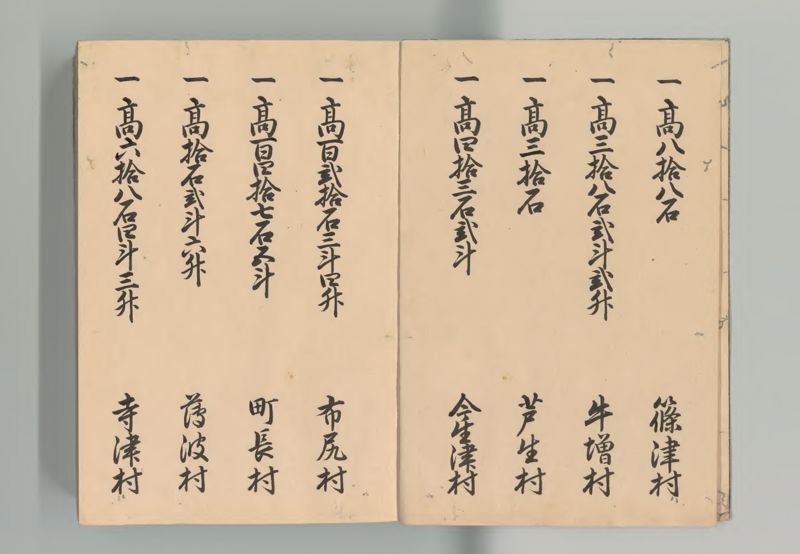 一高八拾八石 篠津村
一高三拾八石弐斗弐升 牛増村
一高三拾石 芦生村
一高四拾三石弐斗 今生津村
一高百弐拾石三斗四升 布尻村
一高百四拾七石五斗 町長村
一高拾石弐斗六升 薄波村
一高六拾八石四斗三升 寺津村